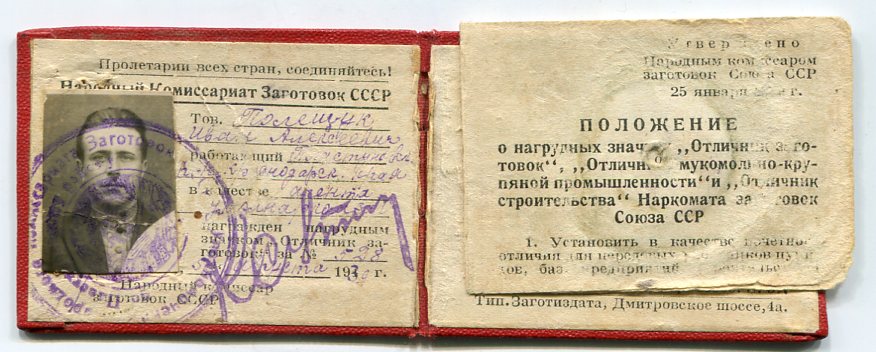 Пролетарии всех стран, соединяйтесь!
Народный Комиссариат Заготовок СССР
Тов. Полещук
Иван Алексеевич
работающий
Краснодарск. края
в качестве агента
награжден нагрудным
значком „Отличник за-
готовок" за №
193 г.
Народный комиссар
заготовок СССР
Заготовок
Утверждено
Народным комиссаром
заготовок Союза ССР
25 января г.
ПОЛОЖЕНИЕ
о нагрудных значках „Отличник заго-
товок", „Отличник мукомольно-кру-
пяной промышленности" и „Отличник
строительства" Наркомата заготовок
Союза ССР
1. Установить в качестве почетного
отличия для передовых работников пунк-
тов, баз, предприятий
Тип. Заготиздата, Дмитровское шоссе, 4а.